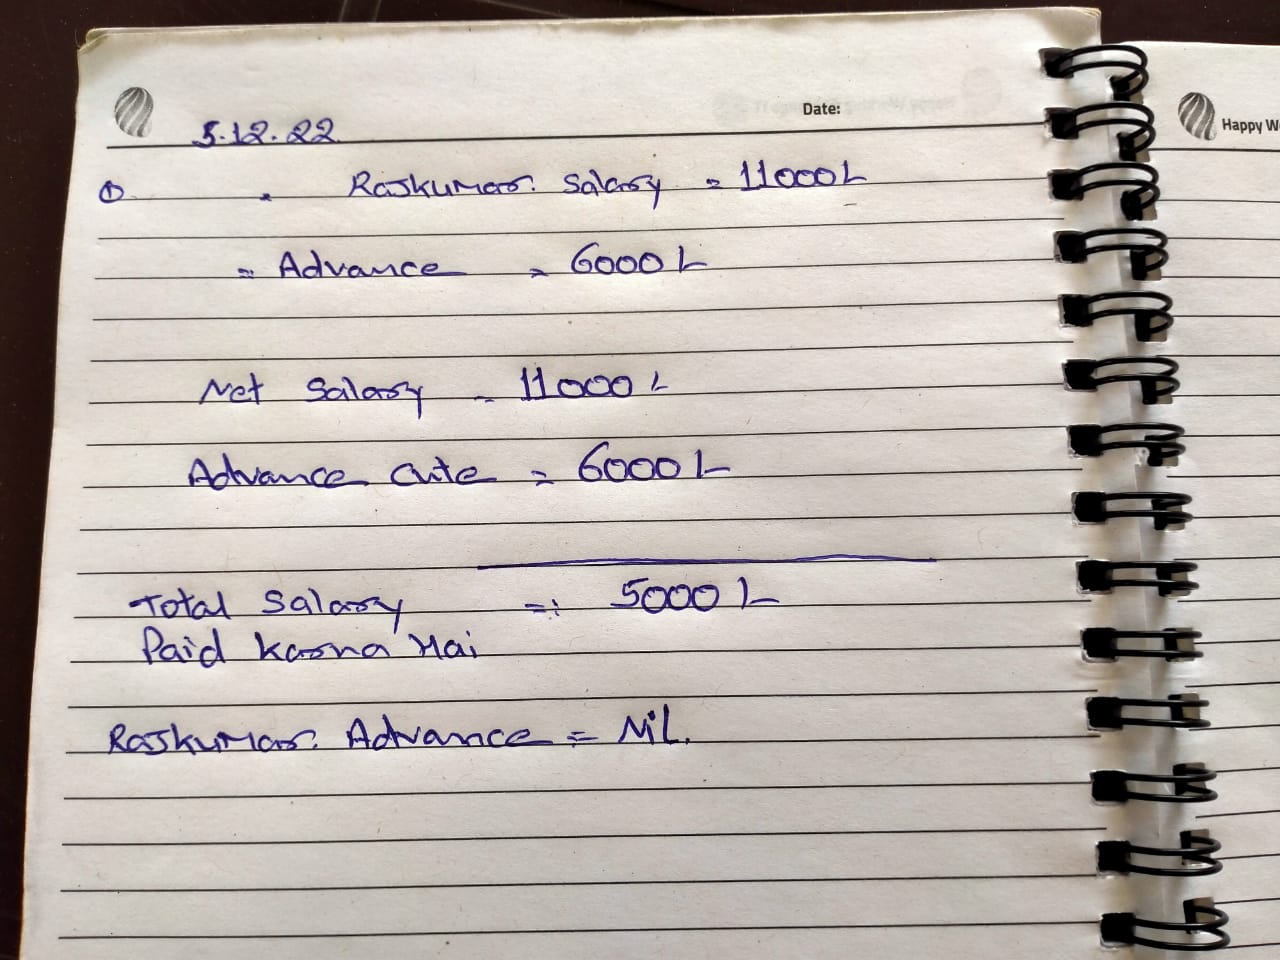 Date:
5.12.22
① Rajkumar. Salary = 11000/-
= Advance = 6000/-
Net Salary = 11000/-
Advance Cute = 6000/-
Total Salary =: 5000/-
Paid Karna Hai
Rajkumar. Advance = NiL.
Happy